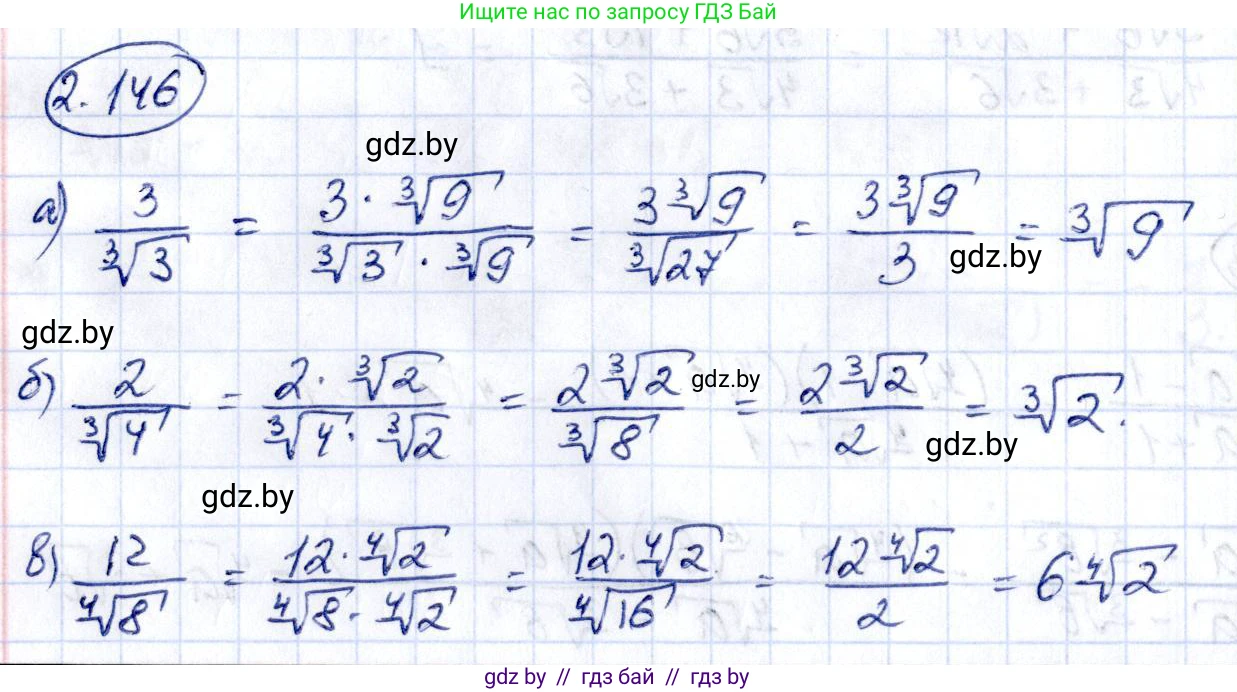 Ищите нас по запросу ГДЗ Бай
2.146
gdz.by
а) 3/∛3 = 3·∛9/∛3·∛9 = 3∛9/∛27 = 3∛9/3 = ∛9
gdz.by
gdz.by
б) 2/∛4 = 2·∛2/∛4·∛2 = 2∛2/∛8 = 2∛2/2 = ∛2.
gdz.by
gdz.by
gdz.by
в) 12/∜8 = 12·∜2/∜8·∜2 = 12·∜2/∜16 = 12∜2/2 = 6∜2
gdz.by // гдз бай // gdz by